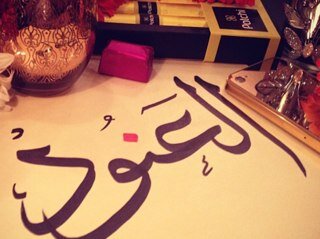 Patchi
العَنُود